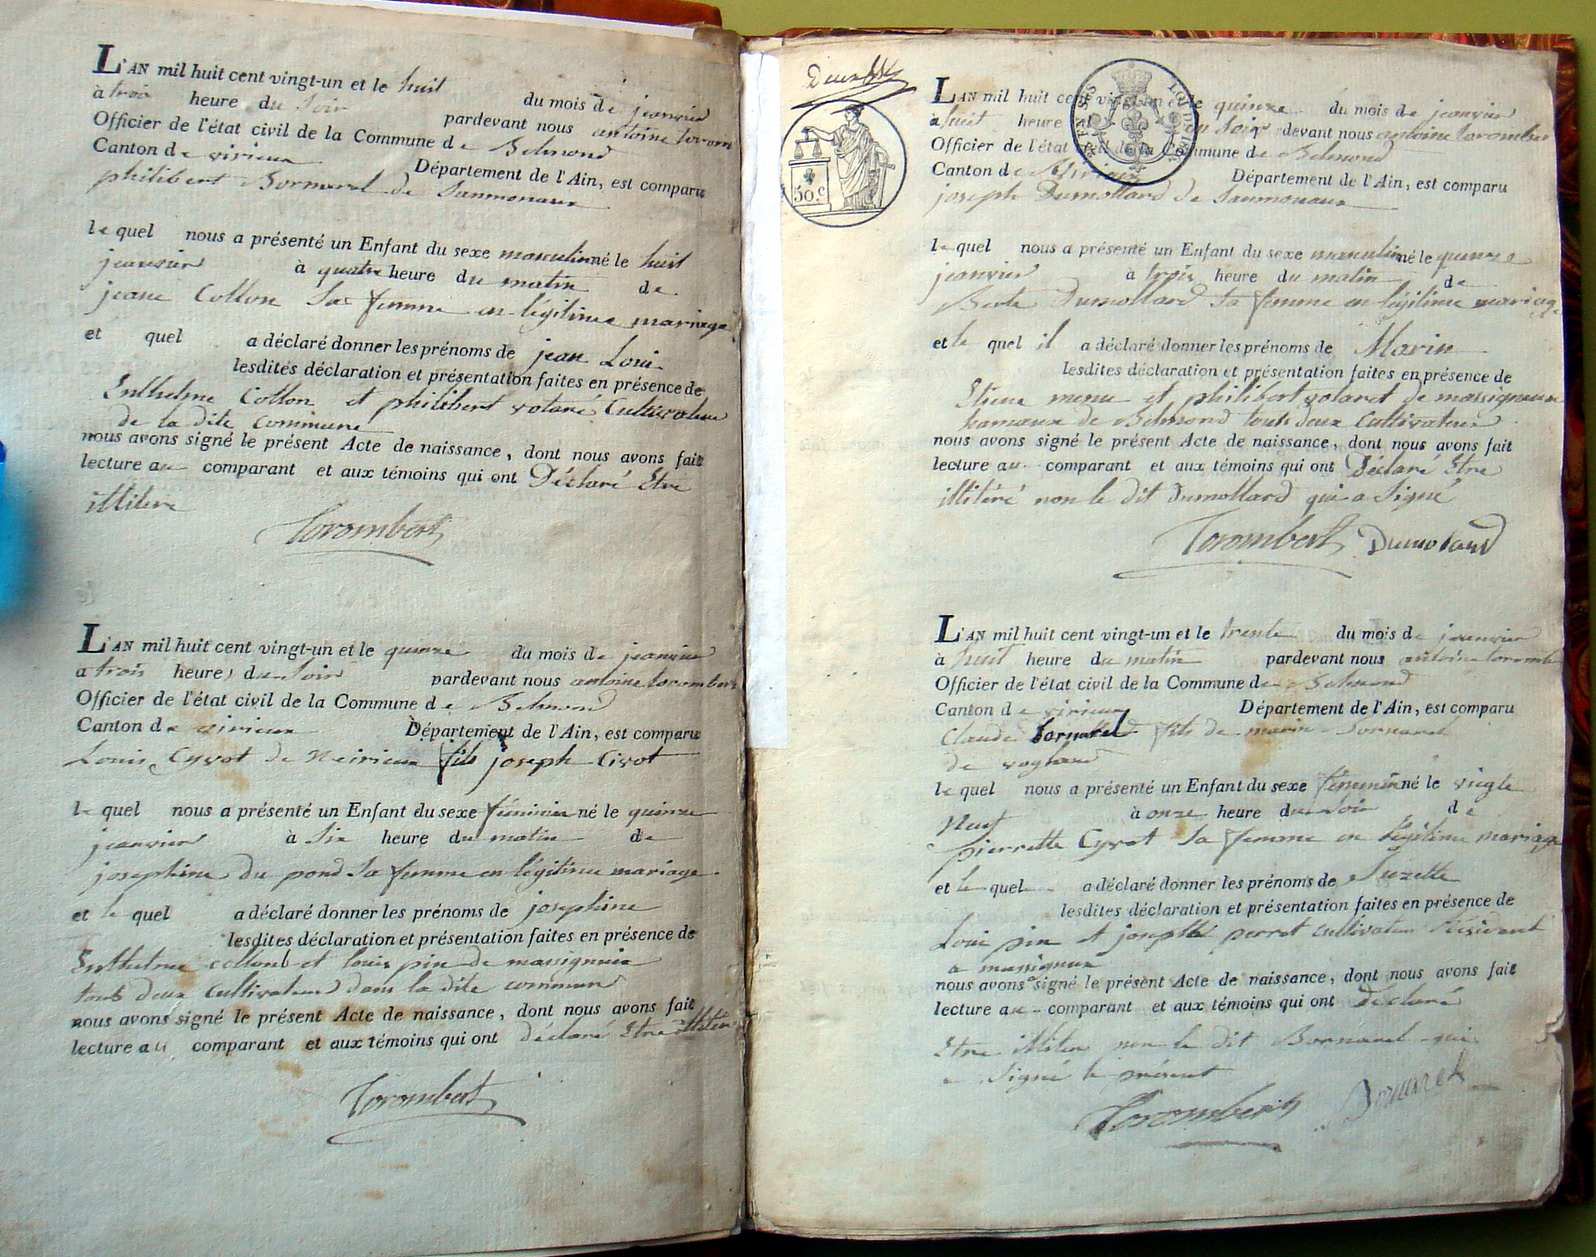 L'AN mil huit cent vingt-un et le huit du mois de jeanvier
à trois heure du soir pardevant nous antoine torom
Officier de l'état civil de la Commune de Belmond
Canton de virieux Département de l'Ain, est comparu
philibert Bornarel de Sanmonaux
lequel nous a présenté un Enfant du sexe masculin né le huit
jeanvier à quatre heure du matin de
jeane Collon sa femme en légitime mariage
et quel a déclaré donner les prénoms de jean Loui
lesdites déclaration et présentation faites en présence de
Enthelme Collon et philibert votaré Cultivateur
de la dite commune
nous avons signé le présent Acte de naissance, dont nous avons fait
lecture au comparant et aux témoins qui ont Déclaré Etre
illitere
Torombert
L'AN mil huit cent vingt-un et le quinze du mois de jeanvier
à trois heure du soir pardevant nous antoine torombert
Officier de l'état civil de la Commune de Belmond
Canton de virieux Département de l'Ain, est comparu
Louis Cyvot de Neirieux fils joseph Civot
lequel nous a présenté un Enfant du sexe féminin né le quinze
jeanvier à six heure du matin de
josephine du pond sa femme en légitime mariage
et le quel a déclaré donner les prénoms de josephine
lesdites déclaration et présentation faites en présence de
Enthelme collond et louis pin de massigneux
touts deux cultivateur dans la dite commune
nous avons signé le présent Acte de naissance, dont nous avons fait
lecture au comparant et aux témoins qui ont déclaré Etre illitéré
Torombert
50 c
L'AN mil huit cent vingt-un et le quinze du mois de jeanvier
à huit heure du soir pardevant nous antoine torombert
Officier de l'état civil de la Commune de Belmond
Canton de virieux Département de l'Ain, est comparu
joseph Dumollard de Sanmonaux
lequel nous a présenté un Enfant du sexe masculin né le quinze
jeanvier à trois heure du matin de
Dumollard sa femme en légitime mariage
et le quel il a déclaré donner les prénoms de Marin
lesdites déclaration et présentation faites en présence de
Etiene menu et philibert votaret de massigneux
hamaux de Belmond touts deux Cultivateur
nous avons signé le présent Acte de naissance, dont nous avons fait
lecture au comparant et aux témoins qui ont Déclaré Etre
illitéré non le dit Dumollard qui a Signé
Torombert Dumolard
L'AN mil huit cent vingt-un et le trente du mois de jeanvier
à huit heure du matin pardevant nous antoine torombe
Officier de l'état civil de la Commune de Belmond
Canton de virieux Département de l'Ain, est comparu
Claude Bornarel fils de marin Bornarel
de
lequel nous a présenté un Enfant du sexe féminin né le vingte
Neuf à onze heure du soir de
pierrette Cyvot sa femme en légitime mariage
et le quel a déclaré donner les prénoms de Suzette
lesdites déclaration et présentation faites en présence de
Loui pin et joseph perret cultivateur Résident
a massigneux
nous avons signé le présent Acte de naissance, dont nous avons fait
lecture au comparant et aux témoins qui ont déclaré
Etre illitere non le dit Bornarel qui
a Signé le présent
Torombert Bornarel